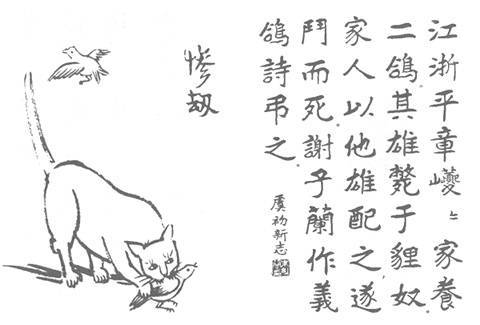 江浙平章巙〻家養
二鴿其雄斃于貍奴
家人以他雄配之遂
鬥而死謝子蘭作義
鴿詩弔之
虞初新志
惨刼